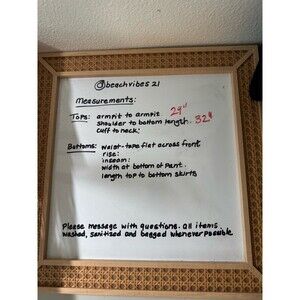 @beachvibes21
Measurements:
Tops: armpit to armpit 29"
shoulder to bottom length. 32"
cuff to neck:
Bottoms: waist-tape flat across front
rise:
inseam:
width at bottom of pant.
length top to bottom skirts
Please message with questions. All items
washed, sanitized and bagged whenever possible.